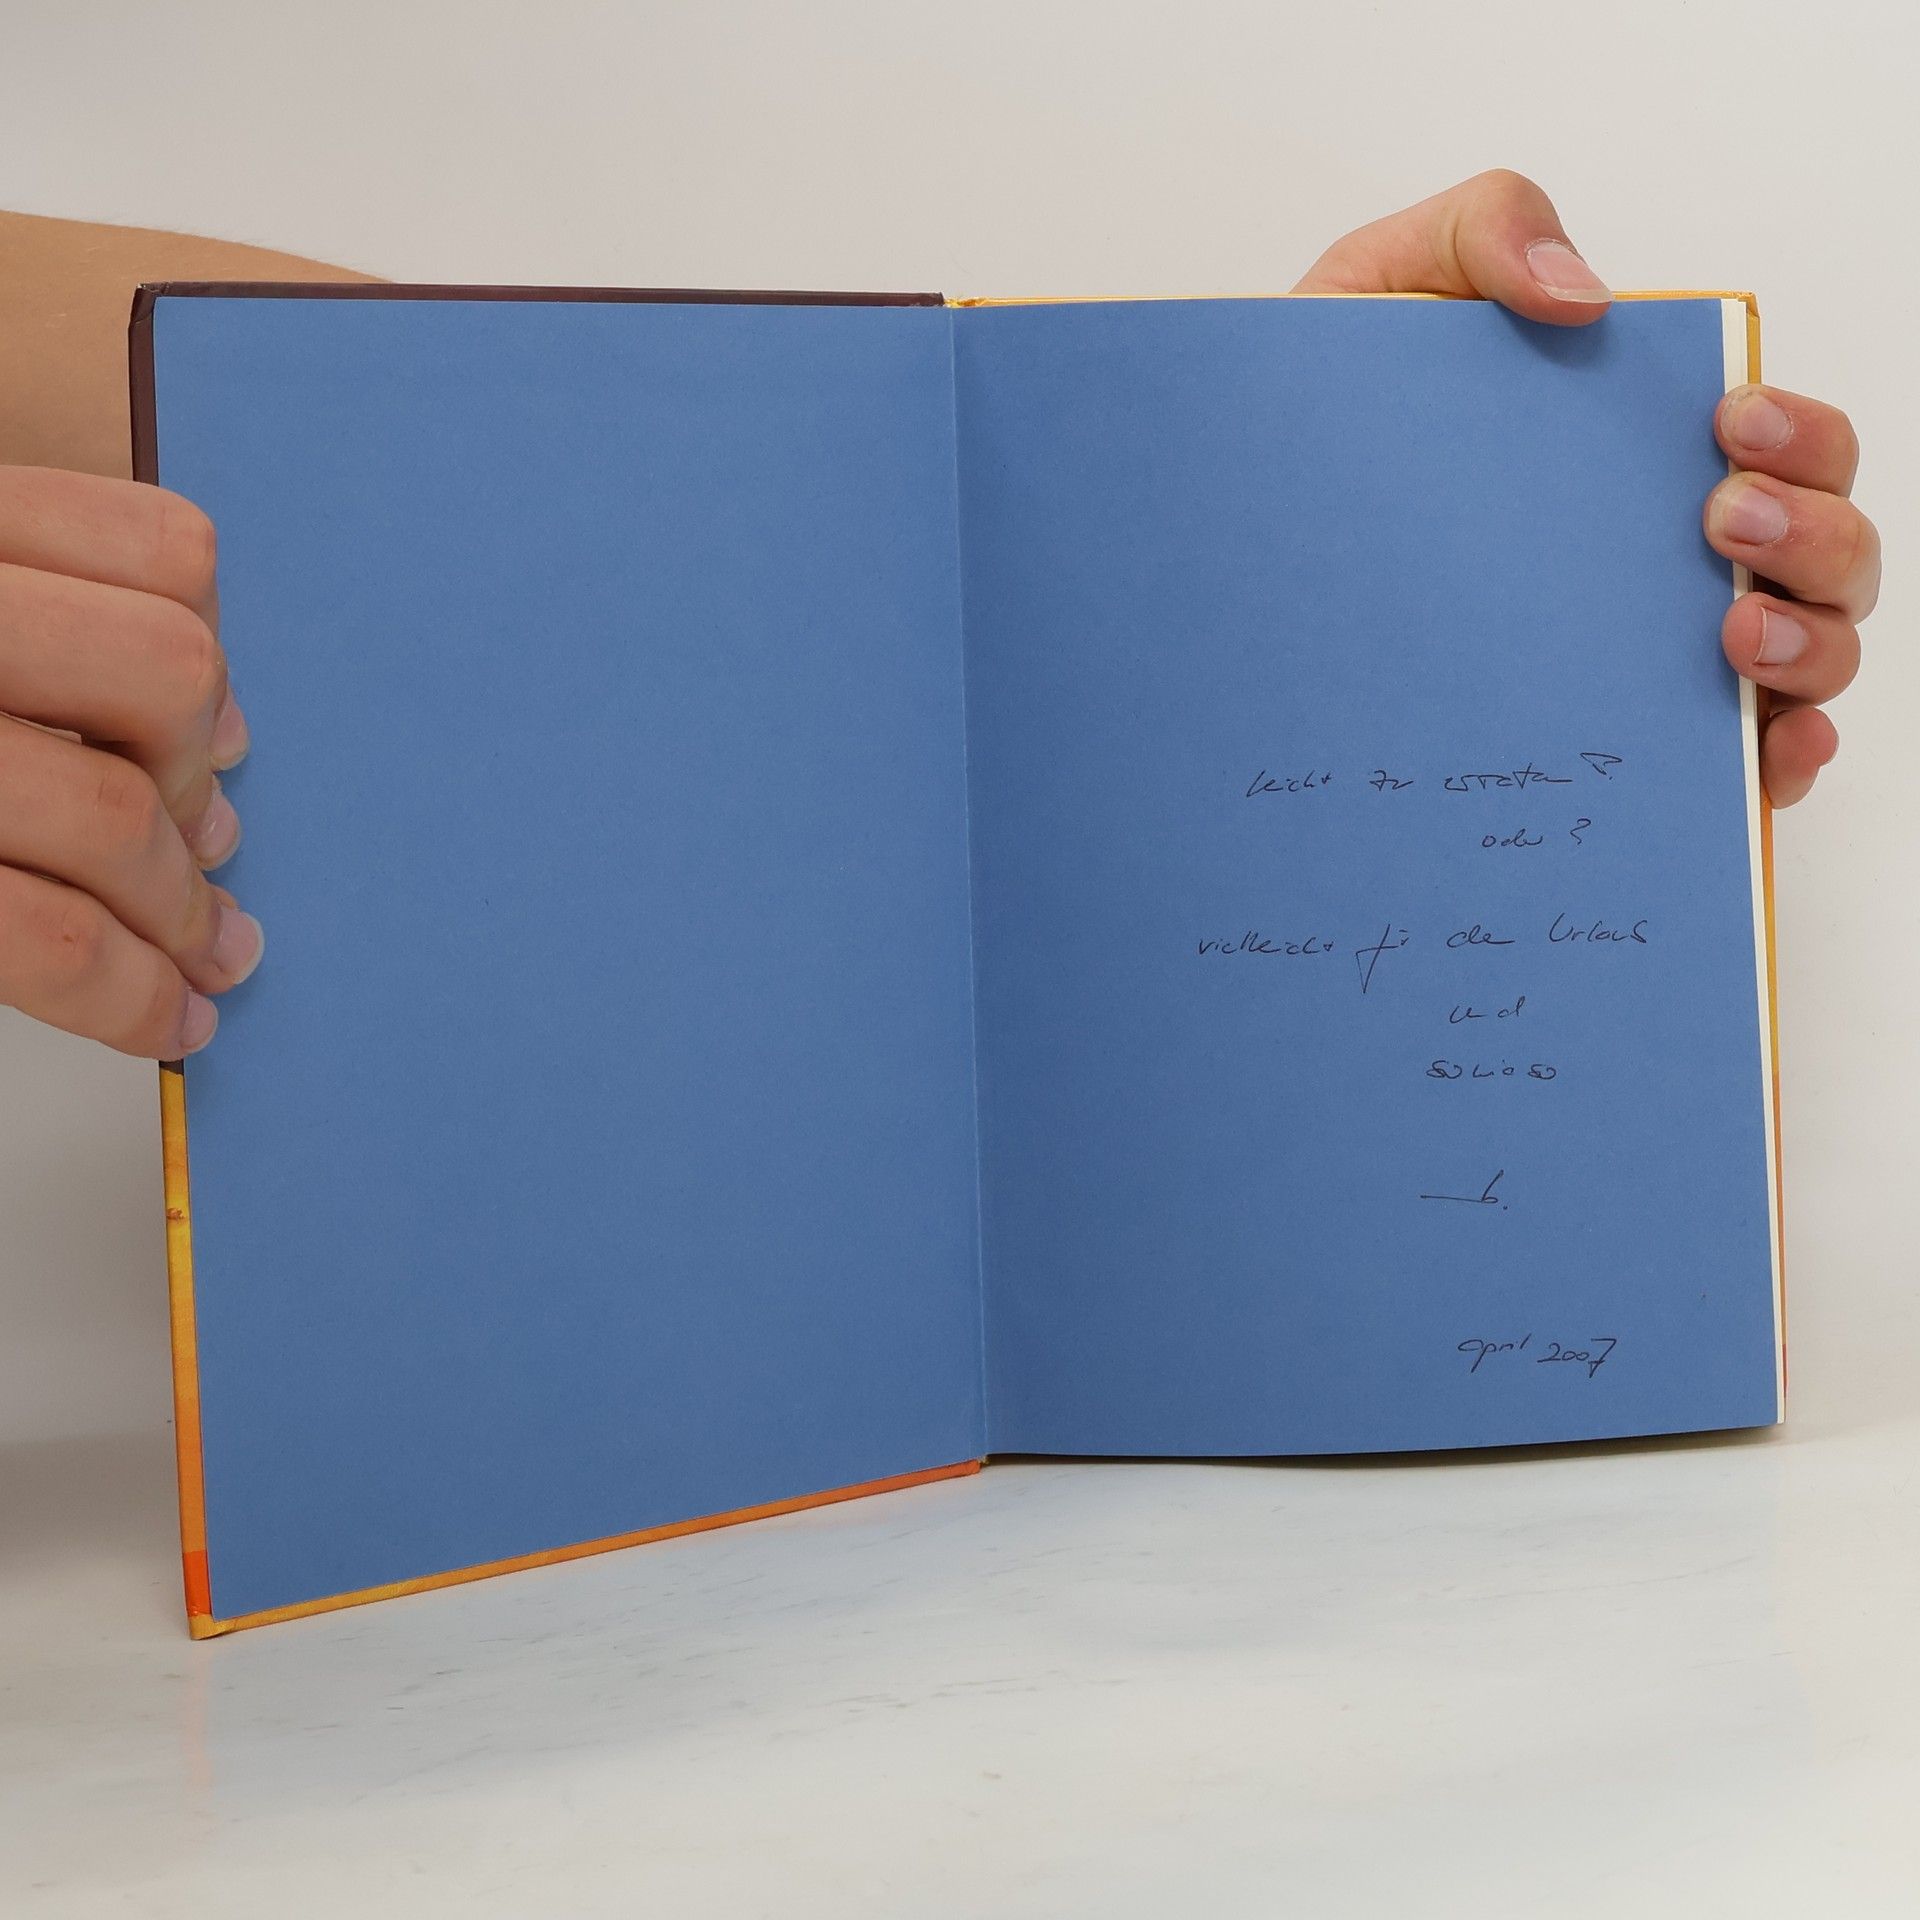 leicht zu erraten?
oder?
vielleicht für den Urlaub
und
sowieso
b.
april 2007